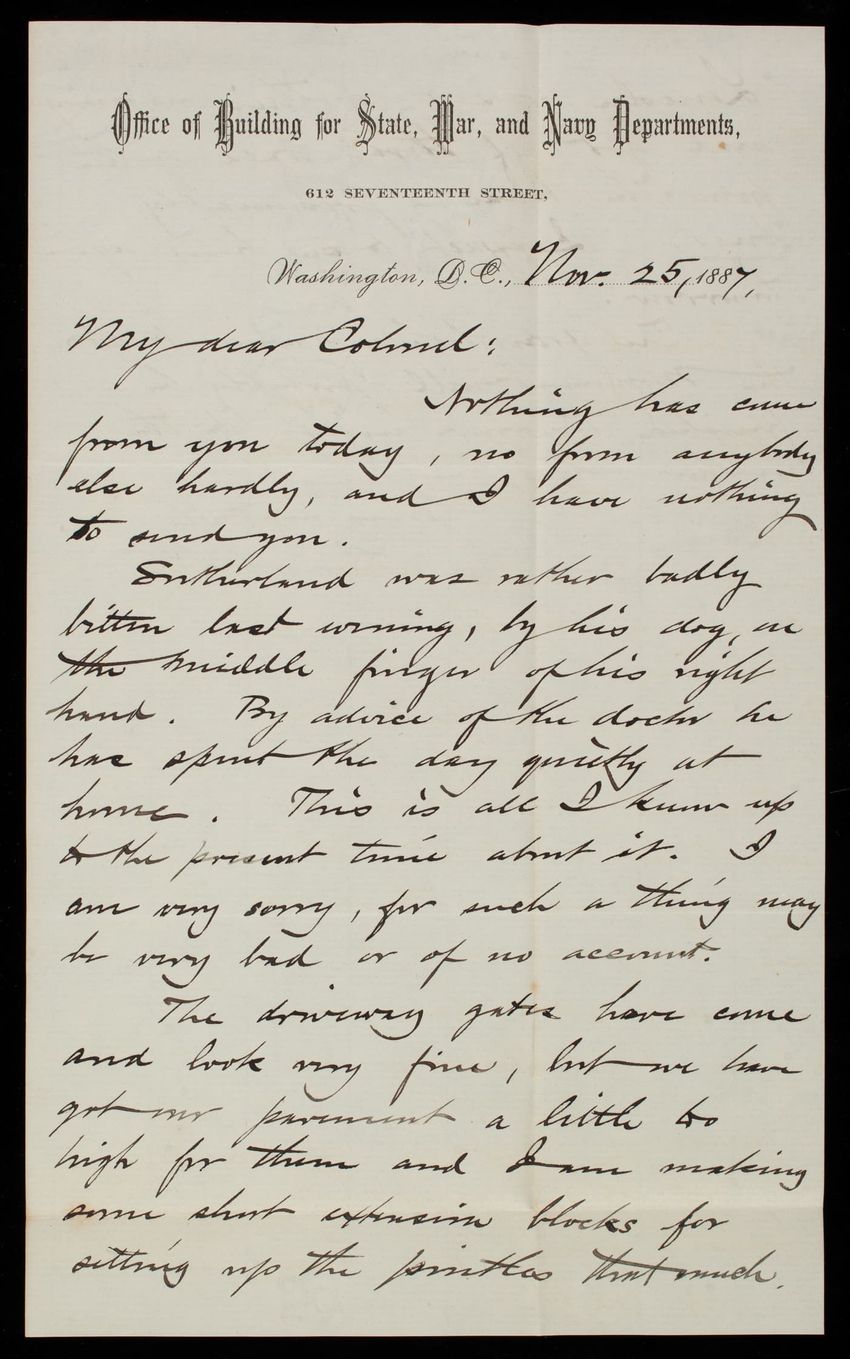 Office of Building for State, War, and Navy Departments,
612 SEVENTEENTH STREET,
Washington, D.C., Nov. 25, 1887,
My dear Colonel:
Nothing has come
from you today, no from anybody
else hardly, and I have nothing
to send you.
Sutherland was rather badly
bitten last evening, by his dog, on
the middle finger of his right
hand. By advice of the doctor he
has spent the day quietly at
home. This is all I know up
to the present time about it. I
am very sorry, for such a thing may
be very bad or of no account.
The driveway gates have come
and look very fine, but we have
got our pavement a little to
high for them and I am making
some short extension blocks for
setting up the pintles that much.